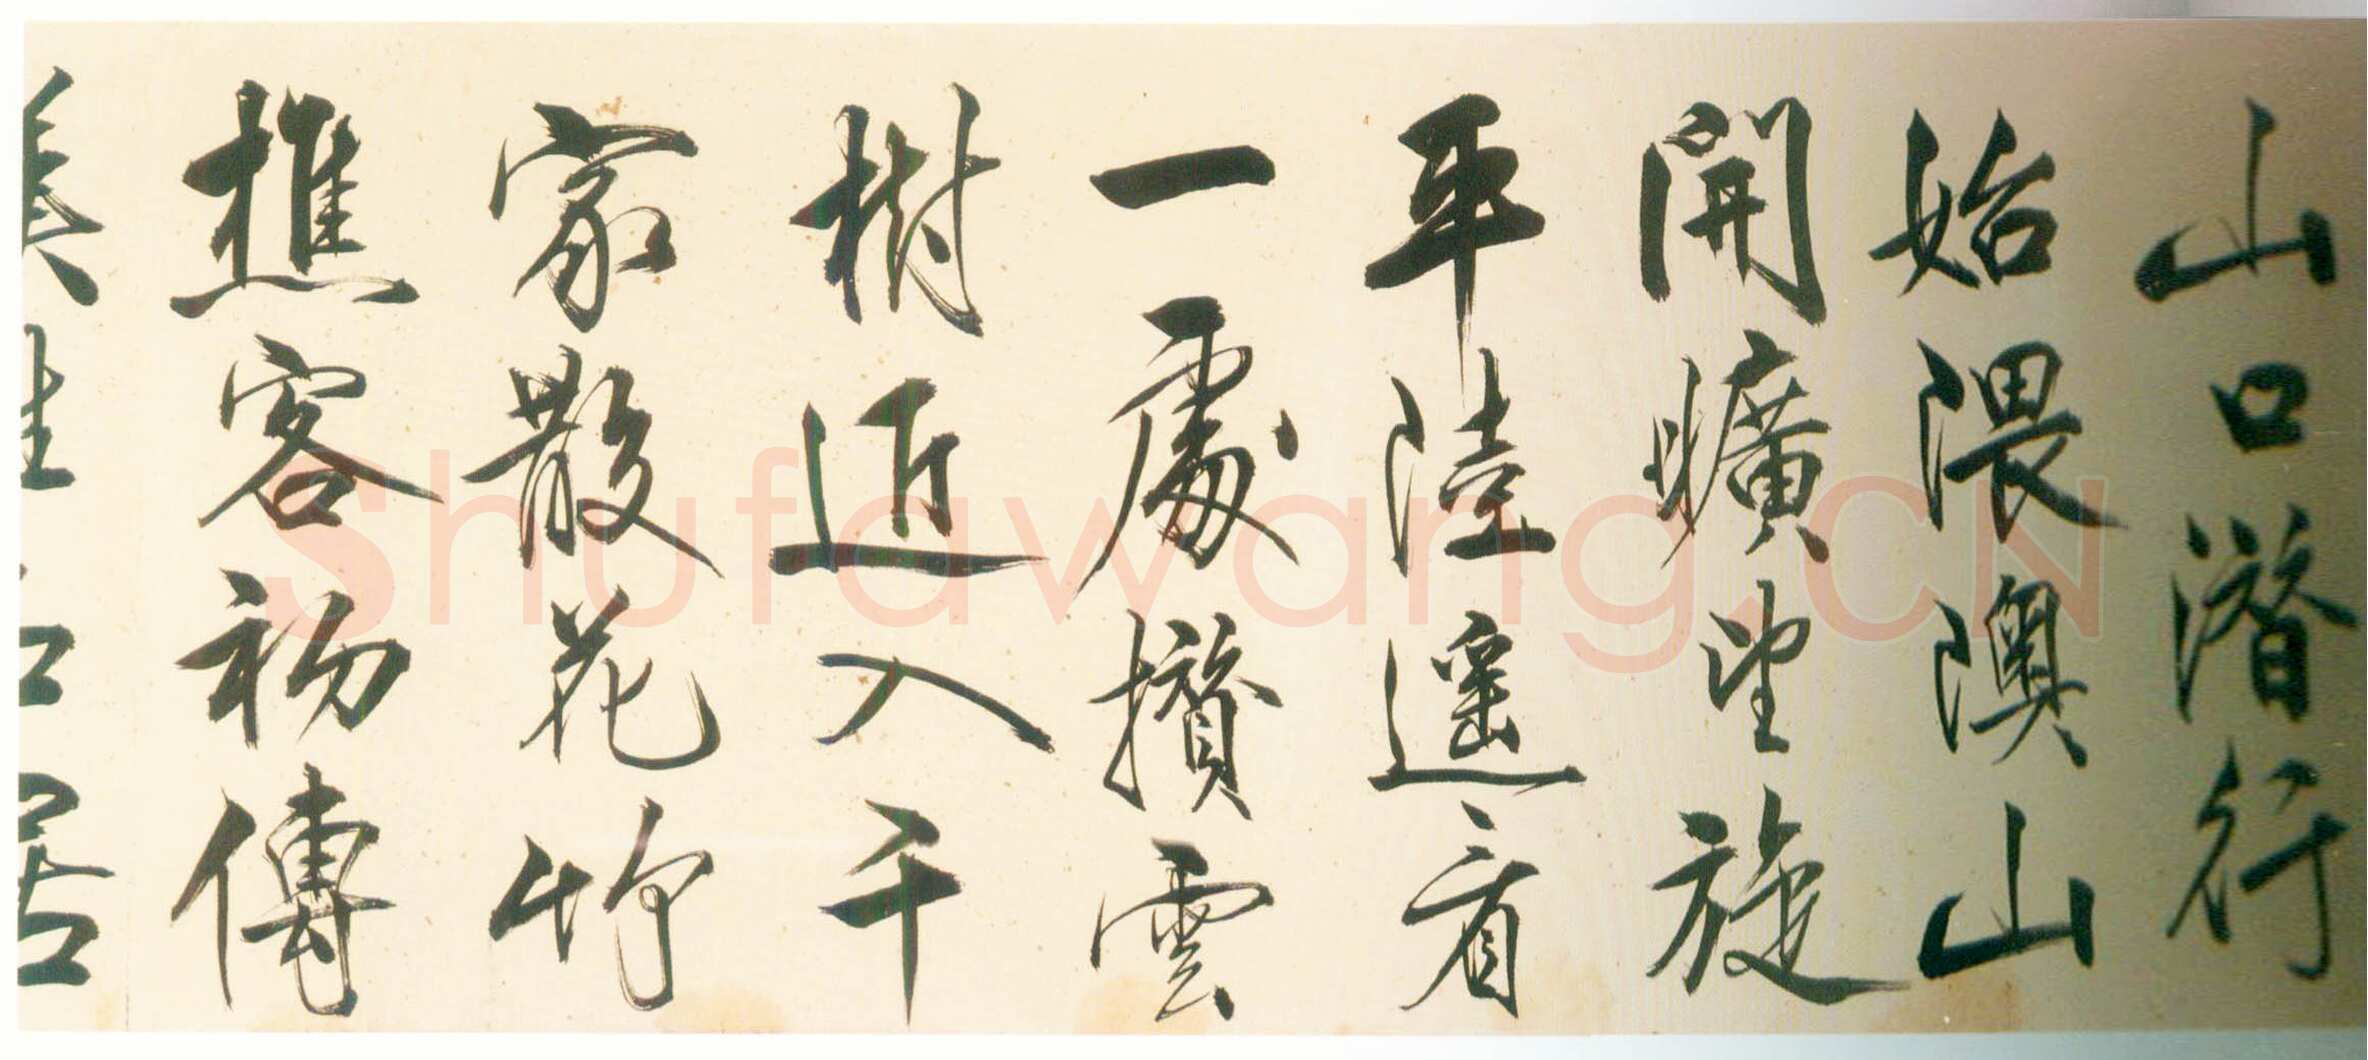 山口潛行
始隈隩山
開曠望旋
平陸遙看
一處攅雲
樹近入千
家散花竹
樵客初傳
漢姓名居
Shufawang.CN